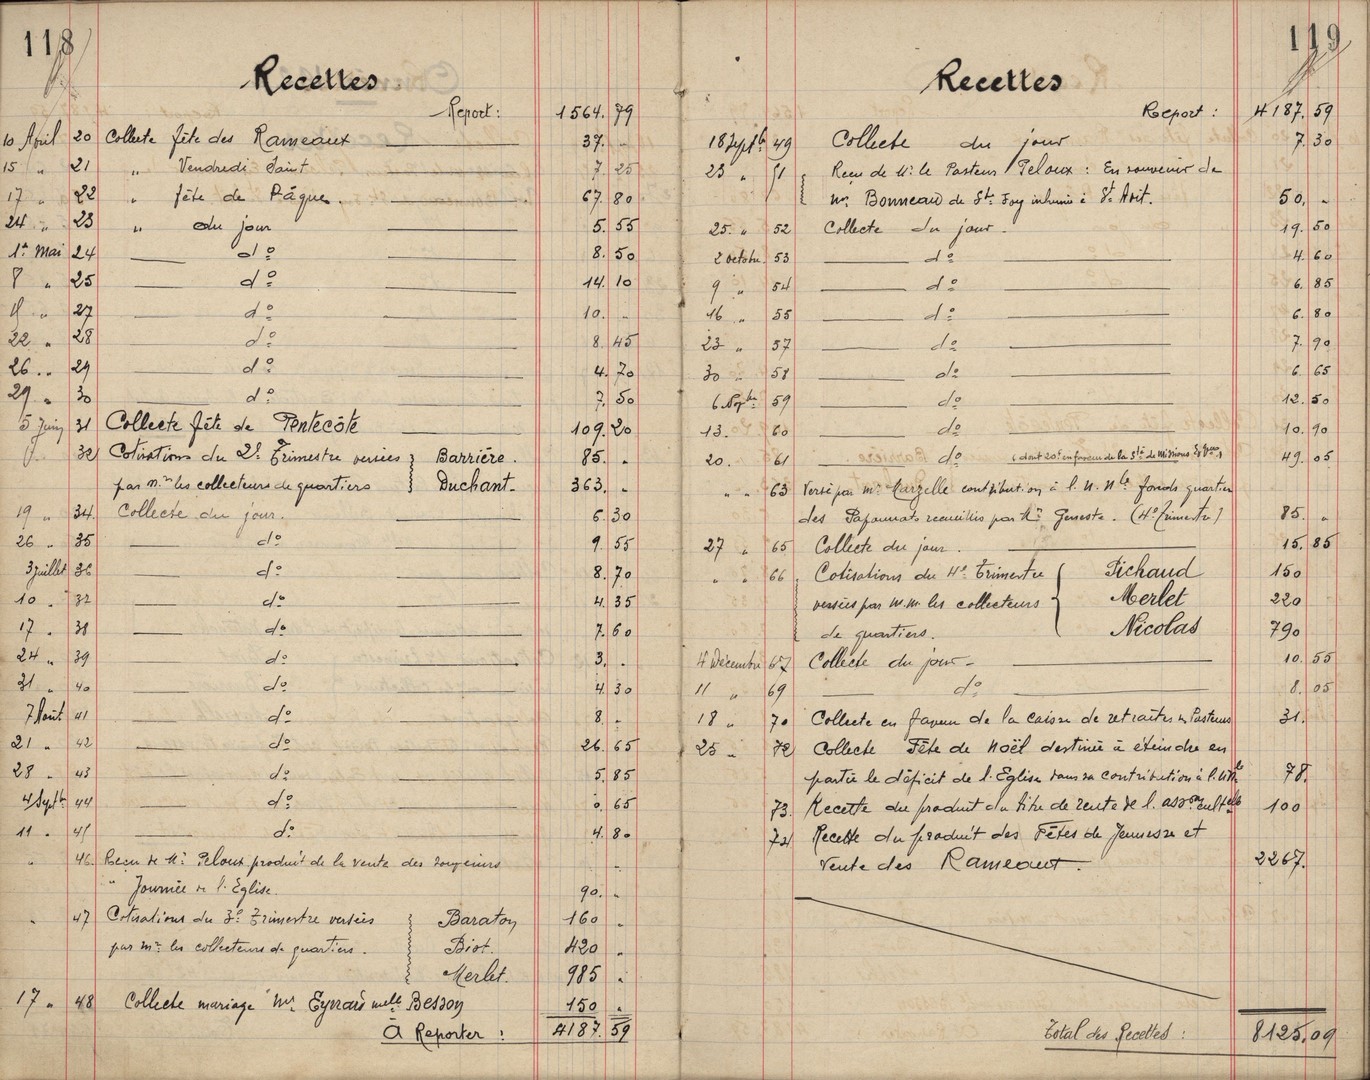 118
Recettes
Report: 1564.79
10 Avril 20 Collecte fête des Rameaux 37. "
15 " 21 " Vendredi Saint 7.25
17 " 22 " fête de Pâques. 67.80
24 " 23 " du jour 5.55
1er Mai 24 do 8.50
8 " 25 do 14.10
" 27 do 10. "
22 " 28 do 8.45
26 " 29 do 4.70
29 " 30 do 7.50
5 Juin 31 Collecte fête de Pentecôte 109.20
32 Cotisations du 2e Trimestre versées } Barrière. 85. "
par mrs les collecteurs de quartiers } Duchant 363. "
19 " 34. Collecte du jour. 6.30
26 " 35 do 9.55
3 Juillet 36 do 8.70
10 " 37 do 4.35
17 " 38 do 7.60
24 " 39 do 3. "
31 " 40 do 4.30
7 Août 41 do 8. "
21 " 42 do 26.65
28 " 43 do 5.85
4 Septb 44 do 0.65
11 " 45 do 4.80
" 46. Reçu de Mr Peloux produit de la vente des
" Journée de l'Eglise. 90. "
" 47 Cotisations du 3e Trimestre versées } Baraton 160 "
par mrs les collecteurs de quartiers. } Biot. 420 "
Merlet. 985 "
17 " 48 Collecte mariage Mr Eynard melle Besson 150 "
A Reporter : 4187.59
119
Recettes
Report : 4187.59
18 Septb 49 Collecte du jour 7.30
23 " 51 { Reçu de Mr le Pasteur Peloux : En souvenir de
mr Bonneau de Ste Foy inhumé à St Avit. 50. "
25. " 52 Collecte du jour. 19.50
2 octobre 53 do 4.60
9 " 54 do 6.85
16 " 55 do 6.80
23 " 57 do 7.90
30 " 58 do 6.65
6 Novbre 59 do 12.50
13. 60 do 10.90
20. " 61 do (dont 20f en faveur de la Sté de Missions) 49.05
" " 63 Versé par mr Marzelle contribution à l.U.Nle fonds quartier
des recueillis par Mr Geneste. (4e Trimestre) 85. "
27 " 65 Collecte du jour. 15.85
" " 66 { Cotisations du 4e Trimestre { Pichaud 150
versées par m.m. les collecteurs { Merlet 220
de quartiers. { Nicolas 790
4 Décembre 67 Collecte du jour 10.55
11 " 69 do 8.05
18 " 70 Collecte en faveur de la caisse de retraites des Pasteurs 31.
25 " 72 Collecte Fête de Noël destinée à éteindre en
partie le déficit de l'Eglise dans sa contribution à l.UNle 78.
73. Recette du produit du titre de rente de l.assoon cultelle 100
74 Recette du produit des Fêtes de Jeunesse et
Vente des Rameaux. 2267.
Total des Recettes : 8125.09